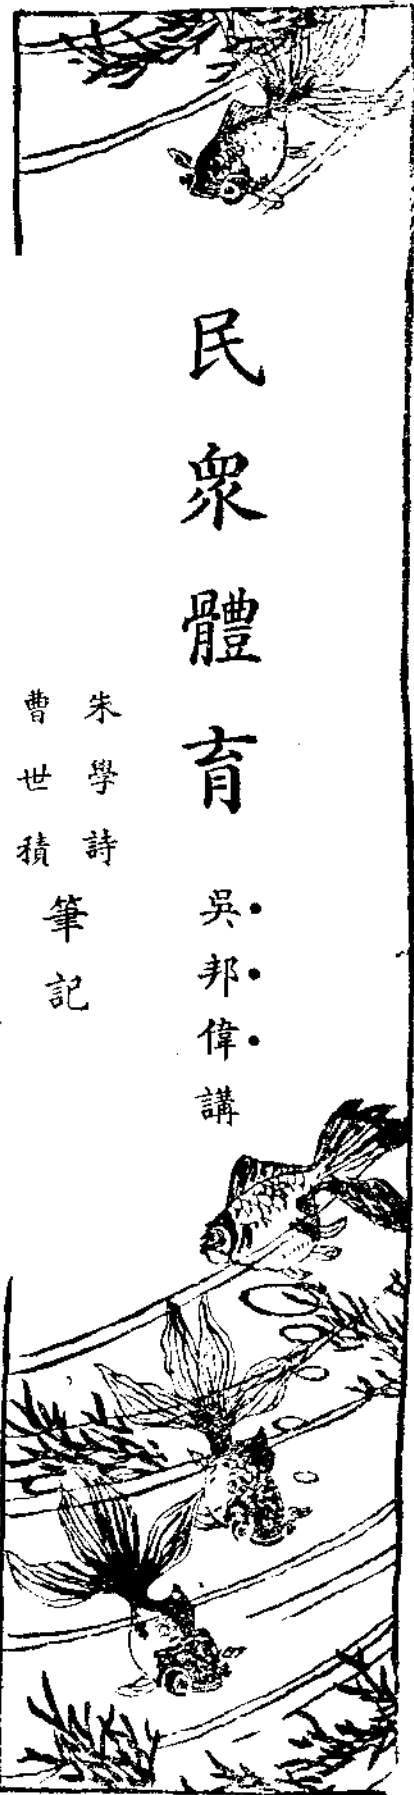 民眾體育
吳邦偉講
朱學詩
曹世積
筆記